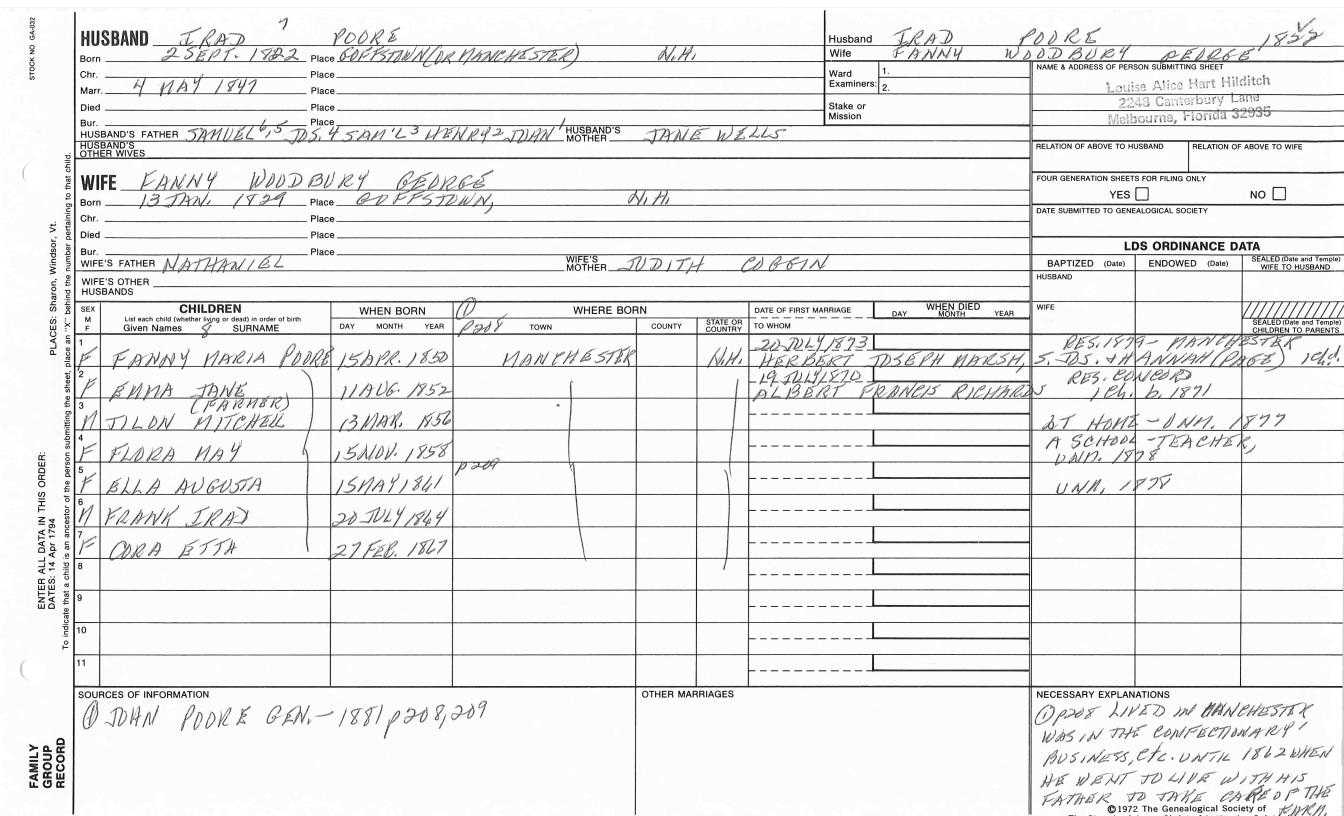 STOCK NO GA-032
7
HUSBAND IRAD POORE
Born 2 SEPT. 1822 Place GOFFSTOWN (OR MANCHESTER) N.H.
Chr. Place
Marr. 4 MAY 1847 Place
Died Place
Bur. Place
HUSBAND'S FATHER SAMUEL 6, 5 JOS. 4 SAM'L 3 HENRY 2 JOHN 1 HUSBAND'S MOTHER JANE WELLS
HUSBAND'S OTHER WIVES
Husband IRAD POORE 1822
Wife FANNY WOODBURY GEORGE
Ward Examiners: 1.
2.
Stake or Mission
NAME & ADDRESS OF PERSON SUBMITTING SHEET
Louise Alice Hart Hilditch
2243 Canterbury Lane
Melbourne, Florida 32935
RELATION OF ABOVE TO HUSBAND RELATION OF ABOVE TO WIFE
FOUR GENERATION SHEETS FOR FILING ONLY
YES NO
DATE SUBMITTED TO GENEALOGICAL SOCIETY
WIFE FANNY WOODBURY GEORGE
Born 13 JAN. 1829 Place GOFFSTOWN, N.H.
Chr. Place
Died Place
Bur. Place
WIFE'S FATHER NATHANIEL WIFE'S MOTHER JUDITH COGGIN
WIFE'S OTHER HUSBANDS
LDS ORDINANCE DATA
BAPTIZED (Date) ENDOWED (Date) SEALED (Date and Temple) WIFE TO HUSBAND
HUSBAND
WIFE
SEALED (Date and Temple) CHILDREN TO PARENTS
SEX M F
CHILDREN
List each child (whether living or dead) in order of birth
Given Names 8 SURNAME
WHEN BORN
DAY MONTH YEAR
① p208
WHERE BORN
TOWN COUNTY STATE OR COUNTRY
DATE OF FIRST MARRIAGE
TO WHOM
WHEN DIED
DAY MONTH YEAR
1 F FANNY MARIA POORE 15 APR. 1850 MANCHESTER N.H. 20 JULY 1873 HERBERT JOSEPH MARSH, S. JOS. & HANNAH (PAGE) 1 ch.d. RES. 1879 - MANCHESTER
2 F EMMA JANE 11 AUG. 1852 19 JULY 1870 ALBERT FRANCIS RICHARDS RES. CONCORD 1 ch. b. 1871
3 M JILON (FARMER) MITCHELL 13 MAR. 1856 AT HOME - UNM. 1877
4 F FLORA MAY 15 NOV. 1858 A SCHOOL-TEACHER, UNM. 1878
5 F ELLA AUGUSTA 15 MAY 1861 p209 UNM, 1878
6 M FRANK IRAD 20 JULY 1864
7 F CORA ETTA 27 FEB. 1867
8
9
10
11
SOURCES OF INFORMATION
① JOHN POORE GEN. - 1881 p208, 209
OTHER MARRIAGES
NECESSARY EXPLANATIONS
① p208 LIVED IN MANCHESTER
WAS IN THE CONFECTIONARY
BUSINESS, etc. UNTIL 1862 WHEN
HE WENT TO LIVE WITH HIS
FATHER TO TAKE CARE OF THE
FARM.
©1972 The Genealogical Society of
PLACES: Sharon, Windsor, Vt.
To indicate that a child is an ancestor of the person submitting the sheet, place an "X" behind the number pertaining to that child.
ENTER ALL DATA IN THIS ORDER:
DATES: 14 Apr 1794
FAMILY GROUP RECORD